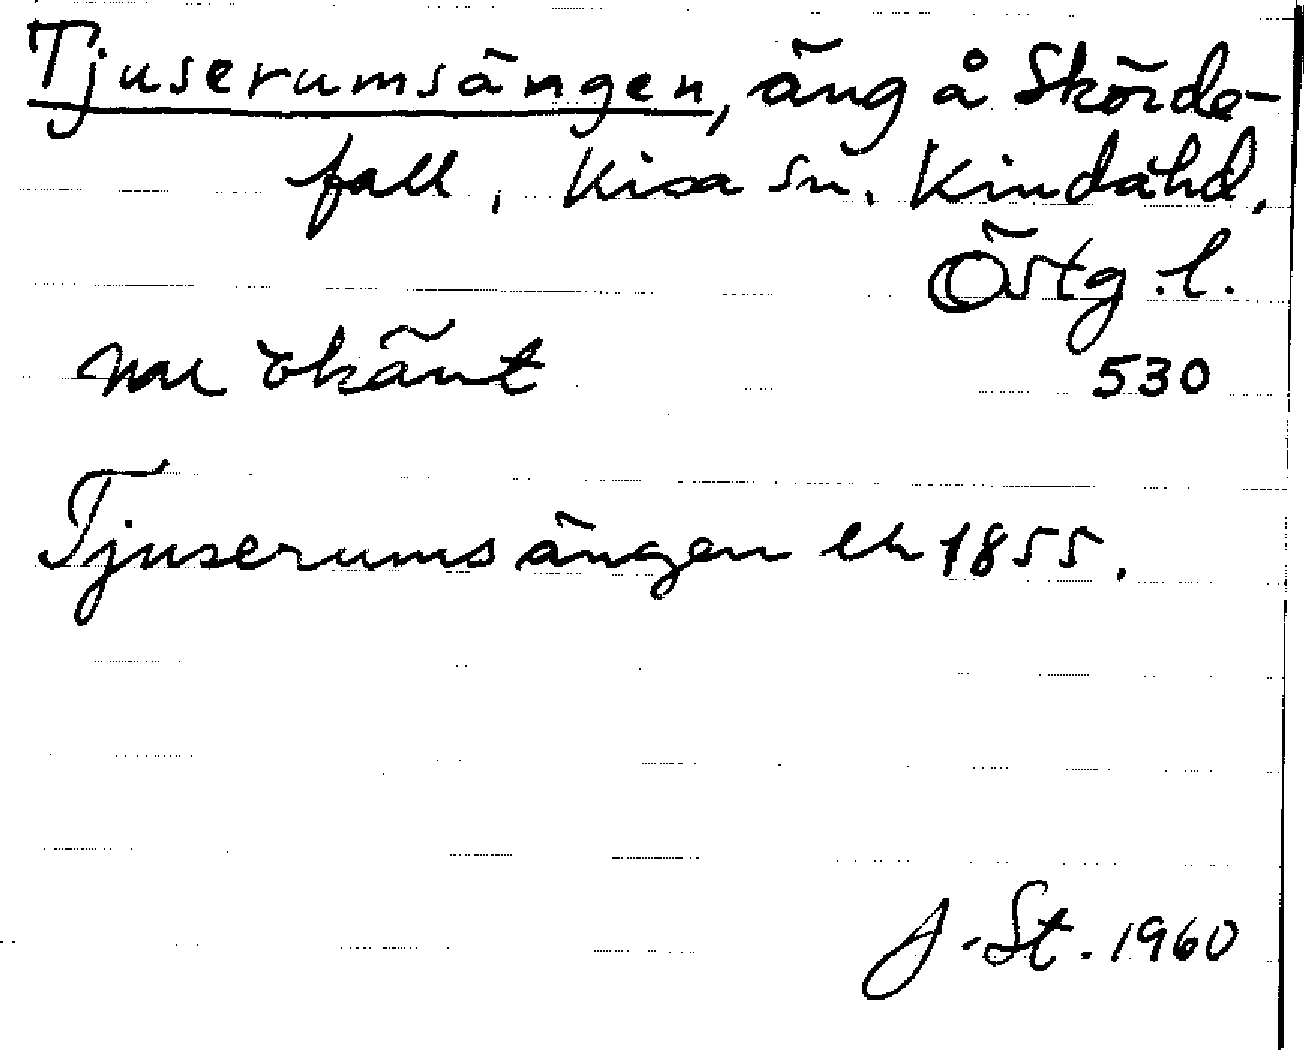 Tjuserumsängen, äng å Skörde-
fall, Kisa sn. Kinda hd.
Östg. l.
nu okänt 530
Tjuserumsängen ek 1855.
J. St. 1960